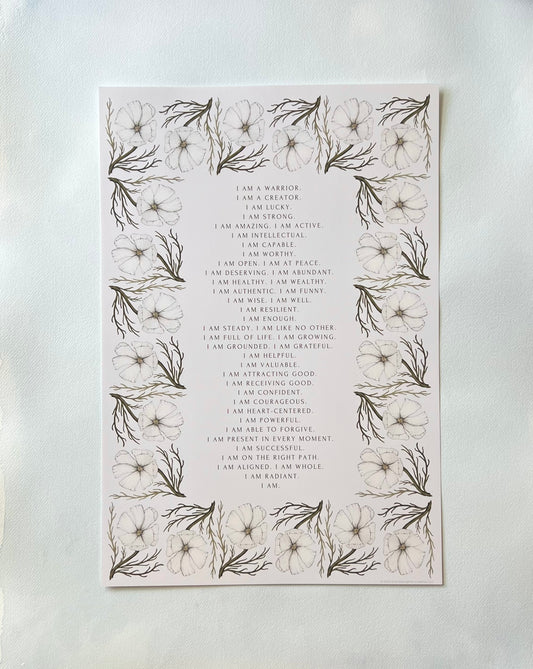 I AM A WARRIOR.
I AM A CREATOR.
I AM LUCKY.
I AM STRONG.
I AM AMAZING. I AM ACTIVE.
I AM INTELLECTUAL.
I AM CAPABLE.
I AM WORTHY.
I AM OPEN. I AM AT PEACE.
I AM DESERVING. I AM ABUNDANT.
I AM HEALTHY. I AM WEALTHY.
I AM AUTHENTIC. I AM FUNNY.
I AM WISE. I AM WELL.
I AM RESILIENT.
I AM ENOUGH.
I AM STEADY. I AM LIKE NO OTHER.
I AM FULL OF LIFE. I AM GROWING.
I AM GROUNDED. I AM GRATEFUL.
I AM HELPFUL.
I AM VALUABLE.
I AM ATTRACTING GOOD.
I AM RECEIVING GOOD.
I AM CONFIDENT.
I AM COURAGEOUS.
I AM HEART-CENTERED.
I AM POWERFUL.
I AM ABLE TO FORGIVE.
I AM PRESENT IN EVERY MOMENT.
I AM SUCCESSFUL.
I AM ON THE RIGHT PATH.
I AM ALIGNED. I AM WHOLE.
I AM RADIANT.
I AM.